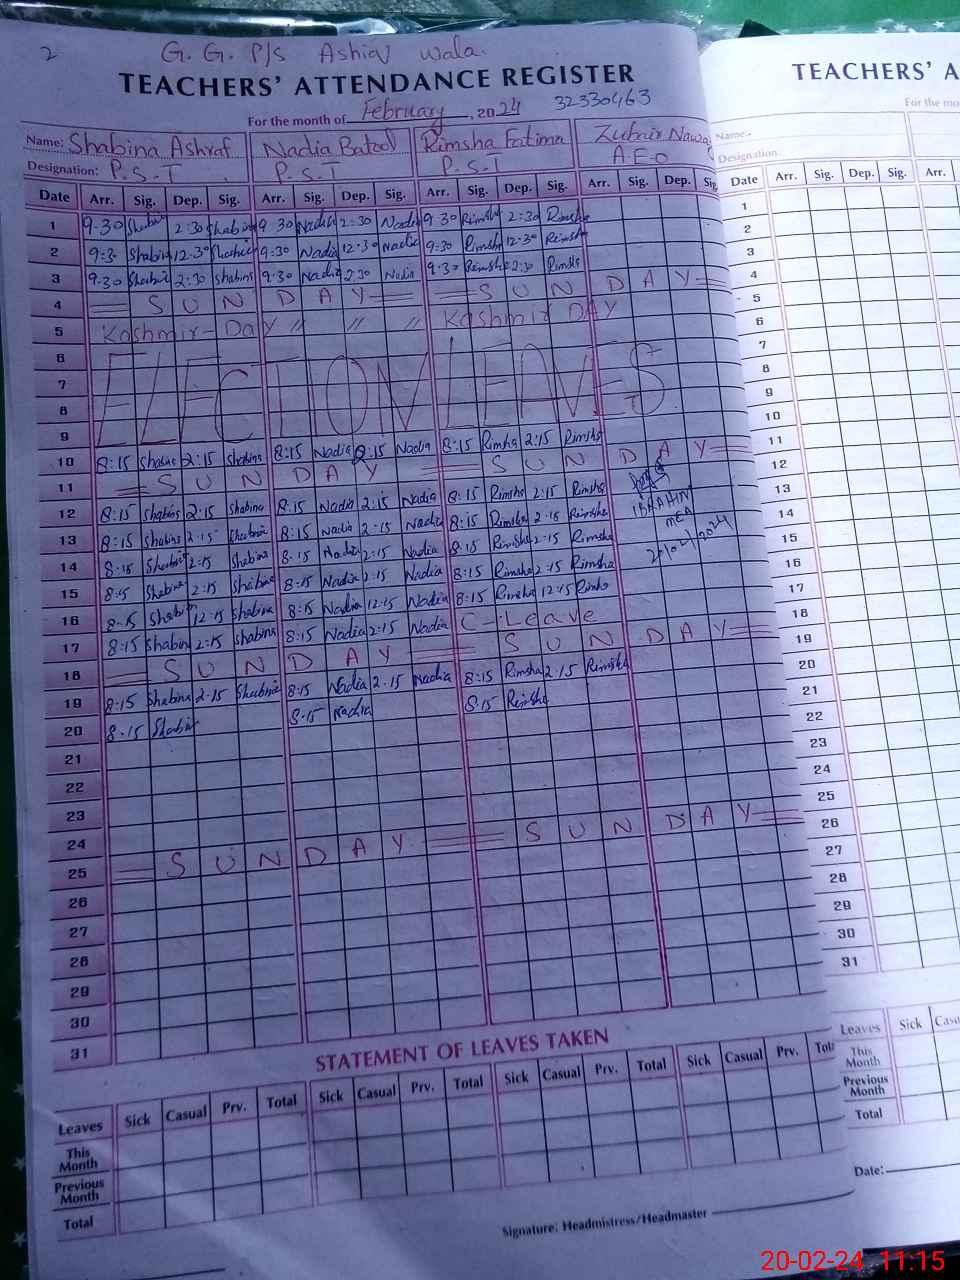 2 G. G. P/S Ashiq Wala.
TEACHERS' ATTENDANCE REGISTER
For the month of February, 2024 32330463
Name: Shabina Ashraf Nadia Batool Rimsha Fatima Zubair Nawaz
Designation: P.S.T P.S.T P.S.T A.E.O
Date Arr. Sig. Dep. Sig. Arr. Sig. Dep. Sig. Arr. Sig. Dep. Sig. Arr. Sig. Dep. Sig.
1 9.30 Shabina 2:30 Shabina 9 30 Nadia 2:30 Nadia 9 30 Rimsha 2:30 Rimsha
2 9:3 Shabina 12.30 Shabina 9:30 Nadia 12.30 Nadia 9:30 Rimsha 12.30 Rimsha
3 9.30 Shabina 2:30 Shabina 9.30 Nadia 2:30 Nadia 9.30 Rimsha 2:30 Rimsha
4 SUNDAY SUNDAY
5 Kashmir-Day // // // Kashmir DAY
6
7 ELECTION LEAVES
8
9
10 8:15 Shabina 2:15 Shabina 8:15 Nadia 2:15 Nadia 8:15 Rimsha 2:15 Rimsha
11 SUNDAY SUNDAY
12 8:15 Shabina 2:15 Shabina 8:15 Nadia 2:15 Nadia 8:15 Rimsha 2:15 Rimsha
13 8:15 Shabina 2:15 Shabina 8:15 Nadia 2:15 Nadia 8:15 Rimsha 2.15 Rimsha
14 8:15 Shabina 2:15 Shabina 8:15 Nadia 2:15 Nadia 8:15 Rimsha 2:15 Rimsha
15 8:15 Shabina 2:15 Shabina 8:15 Nadia 2:15 Nadia 8:15 Rimsha 2:15 Rimsha
16 8.15 Shabina 12:15 Shabina 8:15 Nadia 12:15 Nadia 8:15 Rimsha 12:15 Rimsha
17 8:15 Shabina 2:15 Shabina 8:15 Nadia 2:15 Nadia C-Leave
18 SUNDAY SUNDAY
19 8:15 Shabina 2.15 Shabina 8:15 Nadia 2.15 Nadia 8:15 Rimsha 2.15 Rimsha
20 8.15 Shabina 8.15 Nadia 8.15 Rimsha
IBRAHIM
MEA
20/02/2024
21
22
23
24
25 SUNDAY SUNDAY
26
27
28
29
30
31
STATEMENT OF LEAVES TAKEN
Leaves Sick Casual Prv. Total Sick Casual Prv. Total Sick Casual Prv. Total Sick Casual Prv. Tot
This Month
Previous Month
Total
Signature: Headmistress/Headmaster
TEACHERS' A
For the mo
Name:
Designation
Date Arr. Sig. Dep. Sig. Arr.
1
2
3
4
5
6
7
8
9
10
11
12
13
14
15
16
17
18
19
20
21
22
23
24
25
26
27
28
29
30
31
Leaves Sick Casu
This Month
Previous Month
Total
Date:
20-02-24 11:15